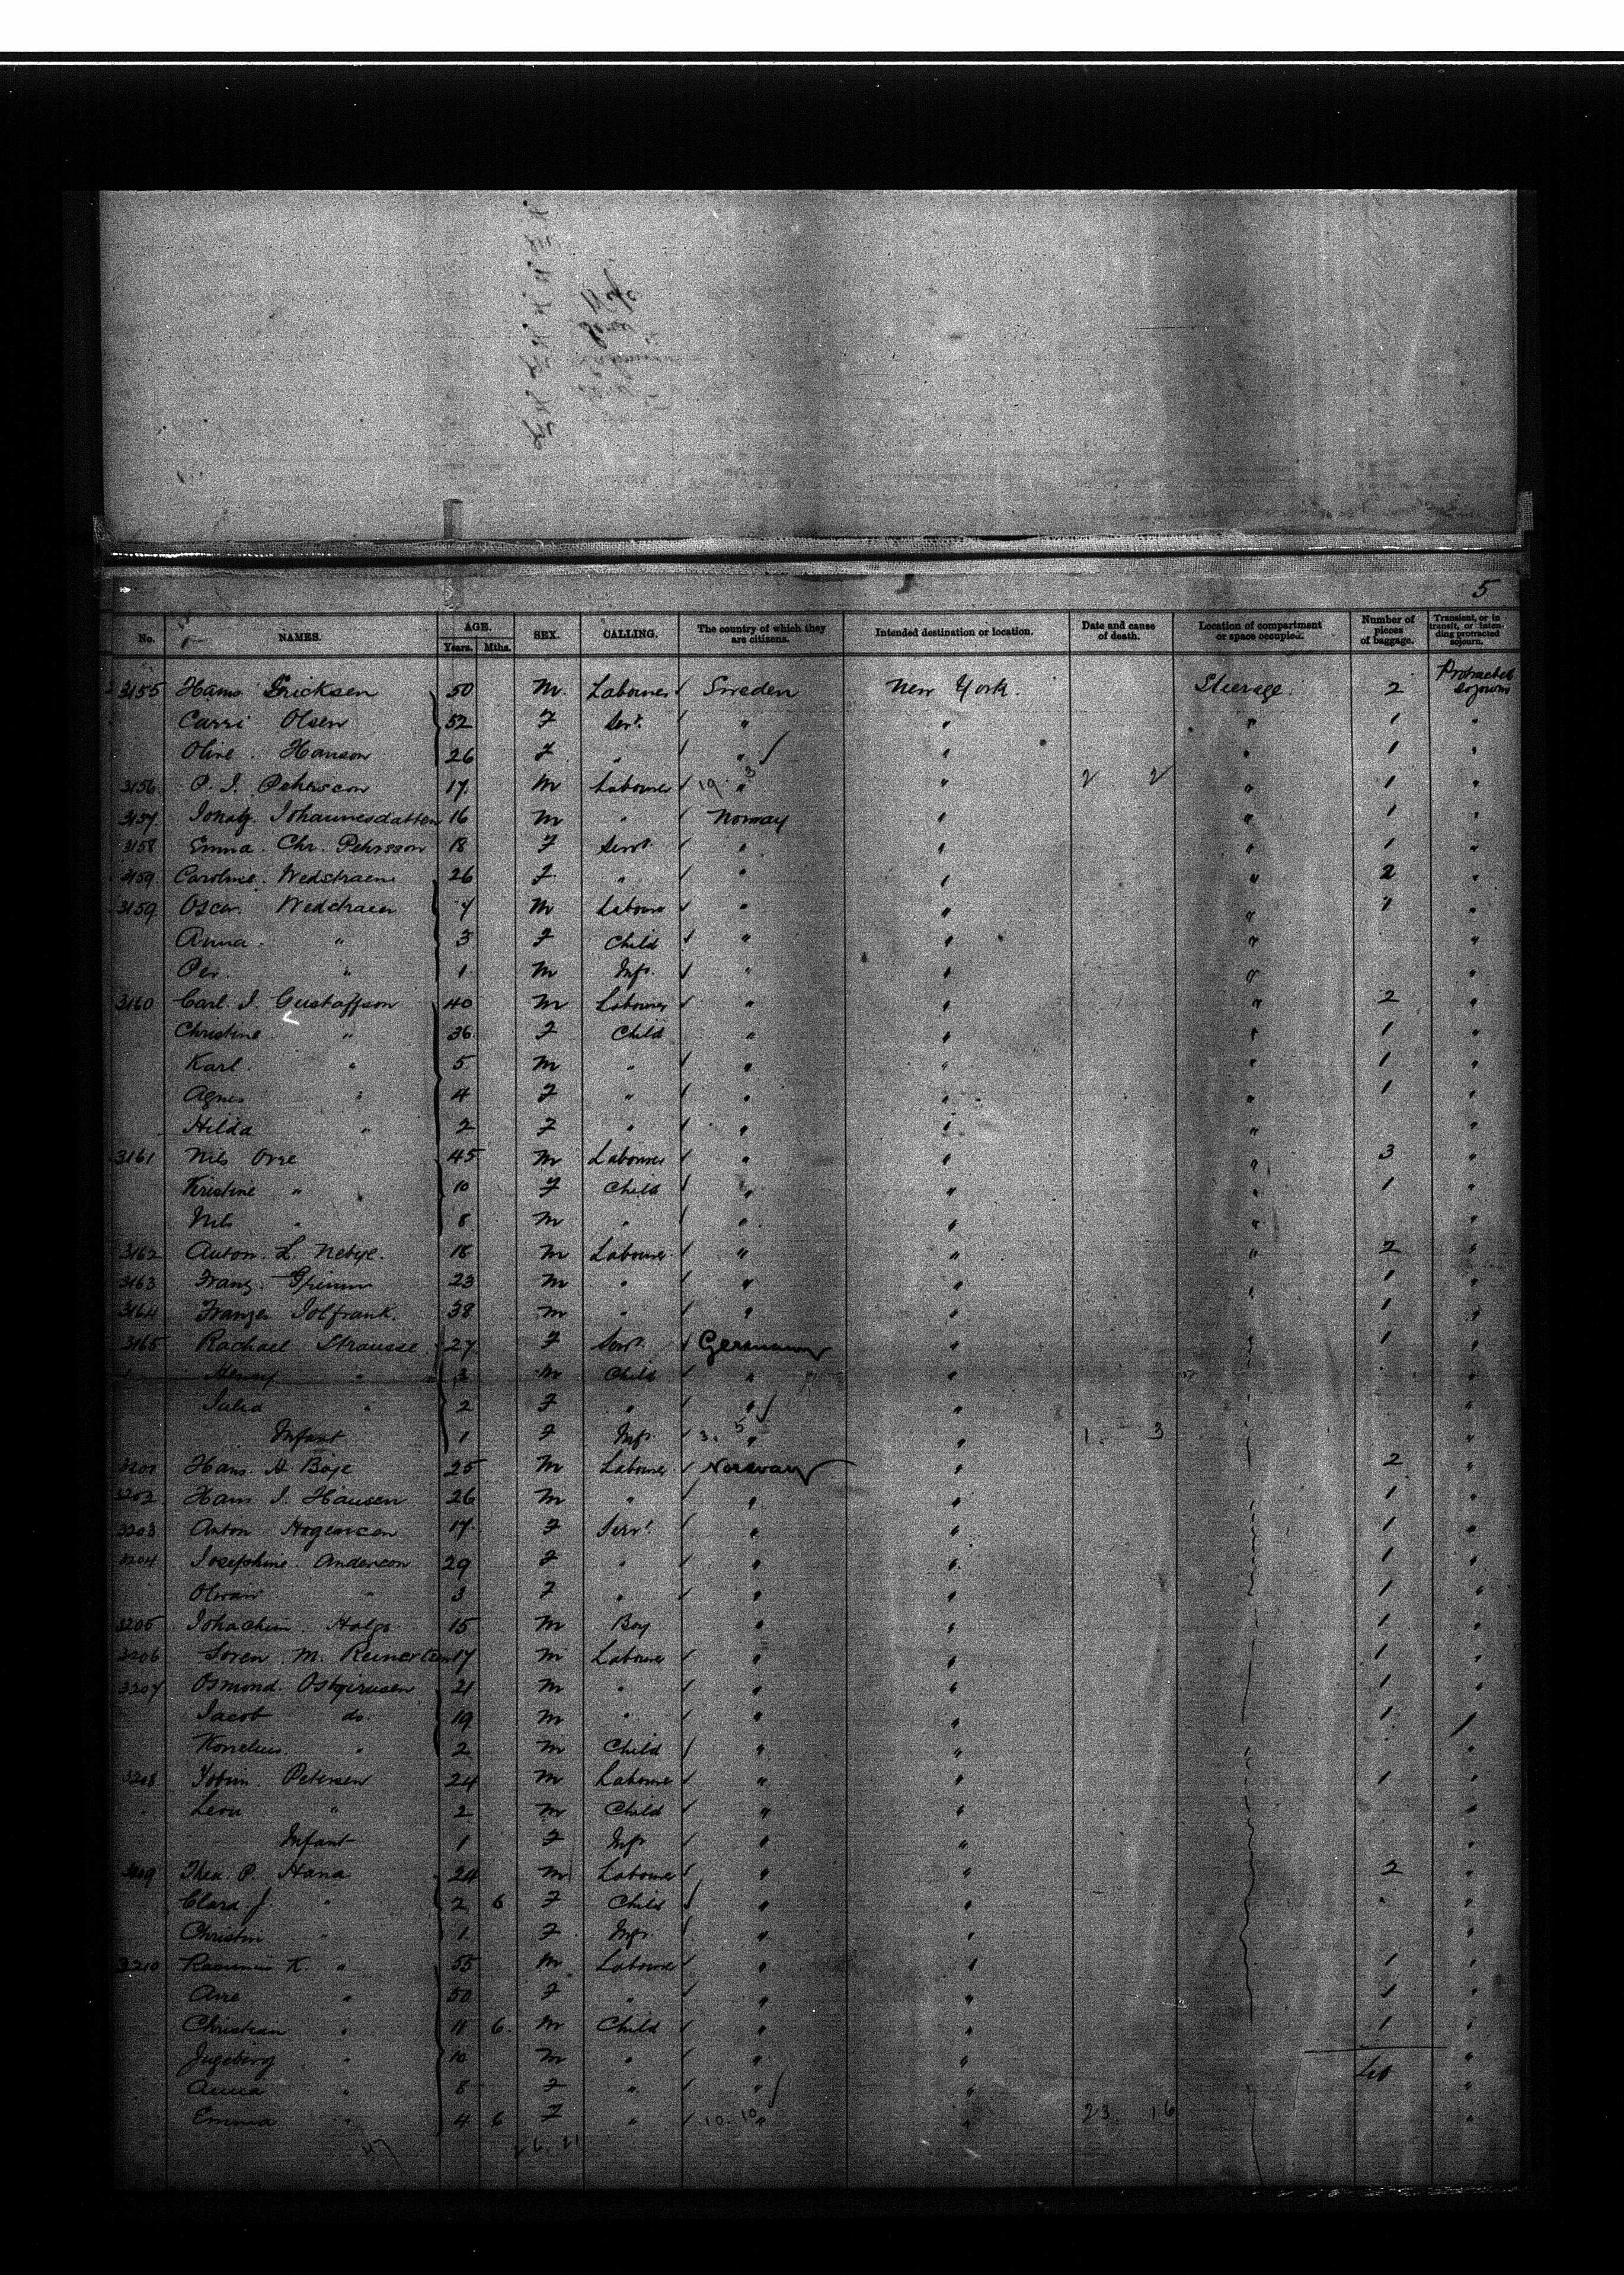 5
No. NAMES. AGE. Years. Mths. SEX. CALLING. The country of which they are citizens. Intended destination or location. Date and cause of death. Location of compartment or space occupied. Number of pieces of baggage. Transient, or in transit, or intending protracted sojourn.
3155 Hans Ericksen 50 M. Labourer Sweden New York. Steerage. 2 Protracted Sojourn
Carri Olsen 52 F Servt. " " " 1 "
Oline Hanson 26 F " " " " 1 "
3156 P. I. Pehrscon 17 M Labourer 19 3 " " 2 2 " 1 "
3157 Johannesdatter 16 M " Norway " " 1 "
3158 Emma Chr. Pehrsson 18 F Servt. " " " 1 "
3159 Caroline Wedstraem 26 F " " " " 2 "
3159 Oscar Wedstraem 7 M Labourer " " " " "
Anna " 3 F Child " " " "
Per " 1 M Inft. " " " "
3160 Carl I. Gustaffson 40 M Labourer " " " 2 "
Christine " 36 F Child " " " 1 "
Karl " 5 M " " " " 1 "
Agnes " 4 F " " " " 1 "
Hilda " 2 F " " " " "
3161 Nils Orre 45 M Labourer " " " 3 "
Kristine " 10 F Child " " " 1 "
Nils " 8 M " " " " "
3162 Anton L. Nebye. 18 M Labourer " " " 2 "
3163 Franz 23 M " " " " 1 "
3164 Franzer Iolfrank. 38 M " " " 1 "
3165 Rachael Strausse 27 F Servt. Germany " " 1 "
Henry " 3 M Child " " "
Julia " 2 F " " " "
Infant 1 F Inft. 3. 5 " " 1 3 "
3201 Hans H. Boje 25 M Labourer Norway " 2 "
3202 Hans I. Hansen 26 M " " " 1 "
3203 Anton Hogenscen 17 F Servt. " " 1 "
3204 Josephine Anderson 29 F " " " 1 "
" 3 F " " " 1 "
3205 Johachim 15 M Boy " " 1 "
3206 Soren M. Reinertsen 17 M Labourer " " 1 "
3207 Osmond 21 M " " " 1 "
Jacob do. 19 M " " " 1
Kornelius " 2 M Child " " "
3208 Petersen 24 M Labourer " " 1 "
Leon " 2 M Child " " "
Infant 1 F Inft " " "
3209 Thea P. Hana 24 M Labourer " " 2 "
Clara J. " 2 6 F Child " " " "
Christin " 1 F Inft " " "
3210 Rasmus K. " 55 M Labourer " " 1 "
Arre " 50 F " " " 1 "
Christian " 11 6 M Child " " 1 "
Ingeborg " 10 M " " " "
Anna " 8 F " " " 40 "
Emma " 4 6 F " 10. 10 " " 23 16 "
47 26. 21